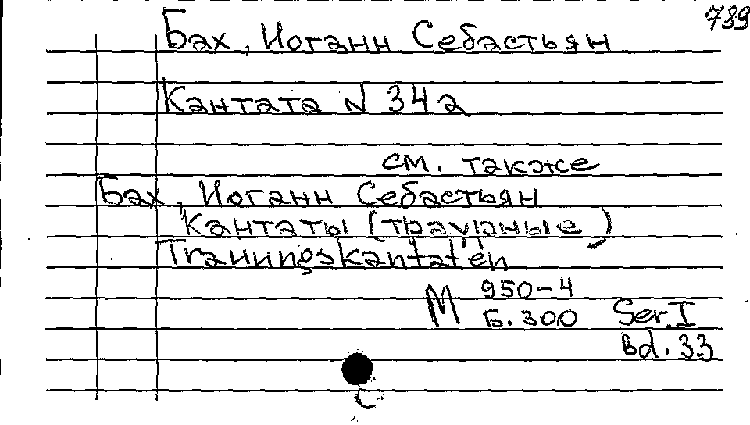 789
Бах, Иоганн Себастьян
Кантата N 34a
см. также
Бах, Иоганн Себастьян
Кантаты (траурные)
Trauungskantaten
М 950-4
Б. 300 Ser. I
Bd. 33